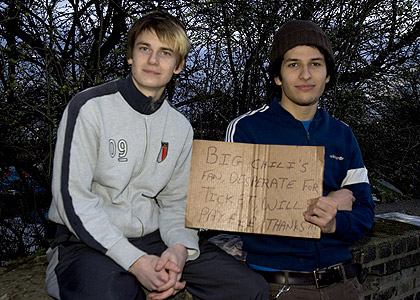 09
BIG CHILI'S
FAN, DESPERATE FOR
TICKET, WILL
PAY £££ THANKS!!!
adidas